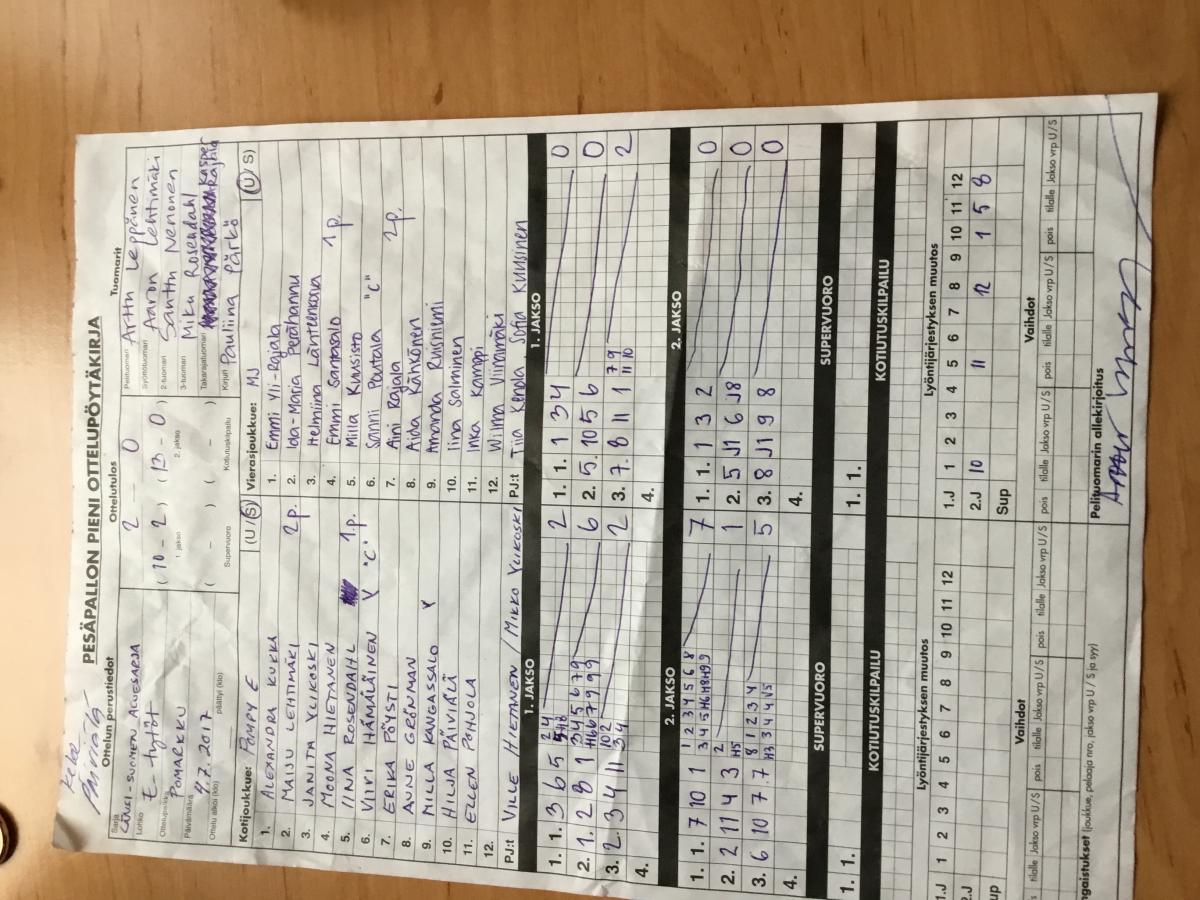 PESÄPALLON PIENI OTTELUPÖYTÄKIRJA
Ottelun perustiedot Ottelutulos Tuomarit
Sarja LÄNSI-SUOMEN ALUESARJA
Lohko E-tytöt
Ottelupaikka POMARKKU
Päivämäärä 9.7.2017
Ottelu alkoi (klo) päättyi (klo)
2 - 0
(10 - 2) (13 - 0)
1. jakso 2. jakso
( - ) ( - )
Supervuoro Kotiutuskilpailu
Pelituomari Arttu Leppänen
Syöttötuomari Aaron Lehtimäki
2-tuomari Santtu Nemonen
3-tuomari Miku Rosendahl
Takarajatuomari Kasper
Kirjuri Pauliina Pärkö
Kotijoukkue: POMPY E (U/S)
1. ALEXANDRA KUKKA
2. MAIJU LEHTIMÄKI 2p.
3. JANITA YLIKOSKI
4. MOONA HIETANEN
5. IINA ROSENDAHL 1p.
6. VIIVI HÄMÄLÄINEN V "C"
7. ERIKA PÖYSTI
8. ANNE GRÖNMAN
9. MILLA KANGASSALO V
10. HILJA PÄIVIÄ
11. ELLEN POHJOLA
12.
PJ:t VILLE HIETANEN / MIKKO YLIKOSKI
Vierasjoukkue: MJ (U/S)
1. Emmi Yli-Rajala
2. Ida-Maria Perähannu
3. Helmiina Länteenkorva
4. Emmi Santasalo 1p.
5. Milla Kuusisto
6. Sanni Poutala "C"
7. Aini Rajala 2p.
8. Aida Kähkönen
9. Amanda Ruisniemi
10. Iina Salminen
11. Inka Kamppi
12. Wilma Viinamäki
PJ:t Tiia Kenola, Sofia Kuusinen
1. JAKSO 1. JAKSO
1. 1. 3 6 5 2 1. 1. 1 3 4 0
2. 1. 2 8 1 6 2. 5. 10 5 6 0
3. 2. 3 4 11 2 3. 7. 8 11 1 2
4. 4.
2. JAKSO 2. JAKSO
1. 1. 7 10 1 7 1. 1. 1 3 2 0
2. 2 11 4 3 1 2. 5 J1 6 J8 0
3. 6 10 7 7 5 3. 8 J1 9 8 0
4. 4.
SUPERVUORO SUPERVUORO
1. 1. 1. 1.
KOTIUTUSKILPAILU KOTIUTUSKILPAILU
Lyöntijärjestyksen muutos Lyöntijärjestyksen muutos
1.J 1 2 3 4 5 6 7 8 9 10 11 12 1.J 1 2 3 4 5 6 7 8 9 10 11 12
2.J 2.J 10 11 12 1 5 8
Sup Sup
Vaihdot Vaihdot
pois tilalle Jakso vrp U/S pois tilalle Jakso vrp U/S pois tilalle Jakso vrp U/S pois tilalle Jakso vrp U/S pois tilalle Jakso vrp U/S
ngaistukset (joukkue, pelaaja nro, jakso vrp U / S ja syy) Pelituomarin allekirjoitus